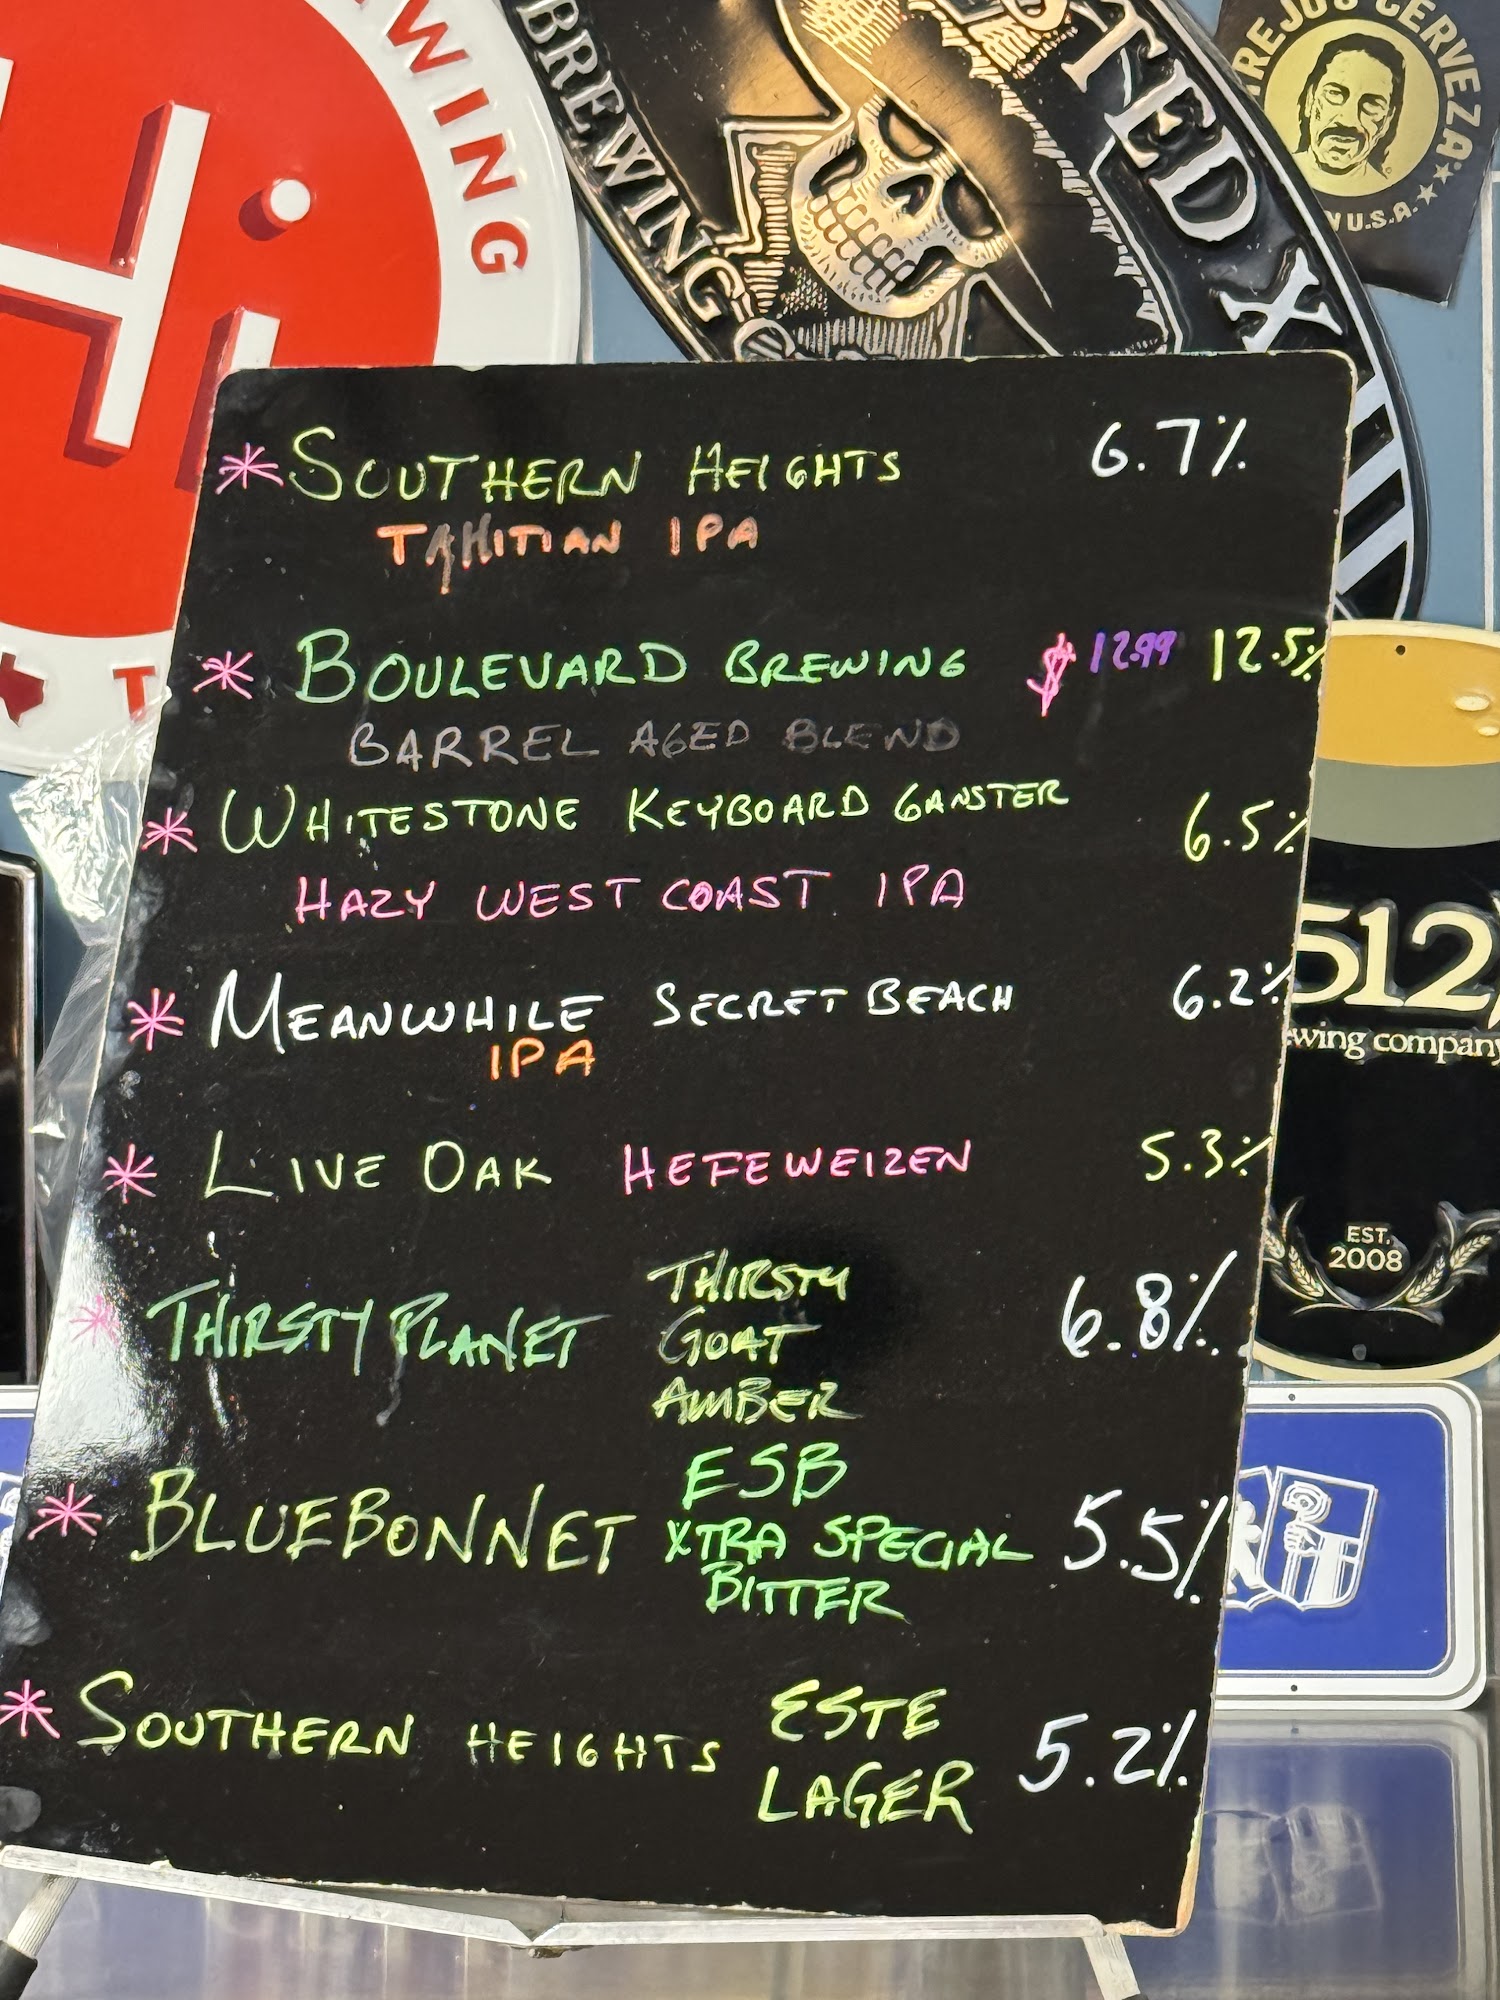 WING
BREWING
TED X
TREJO'S CERVEZA
U.S.A.
Hi
T
* SOUTHERN HEIGHTS 6.7%
TAHITIAN IPA
* BOULEVARD BREWING $12.99 12.5%
BARREL AGED BLEND
* WHITESTONE KEYBOARD GANSTER 6.5%
HAZY WEST COAST IPA
* MEANWHILE SECRET BEACH 6.2%
IPA
* LIVE OAK HEFEWEIZEN 5.3%
* THIRSTY PLANET THIRSTY GOAT AMBER 6.8%
* BLUEBONNET ESB XTRA SPECIAL BITTER 5.5%
* SOUTHERN HEIGHTS ESTE LAGER 5.2%
512)
ewing company
EST.
2008